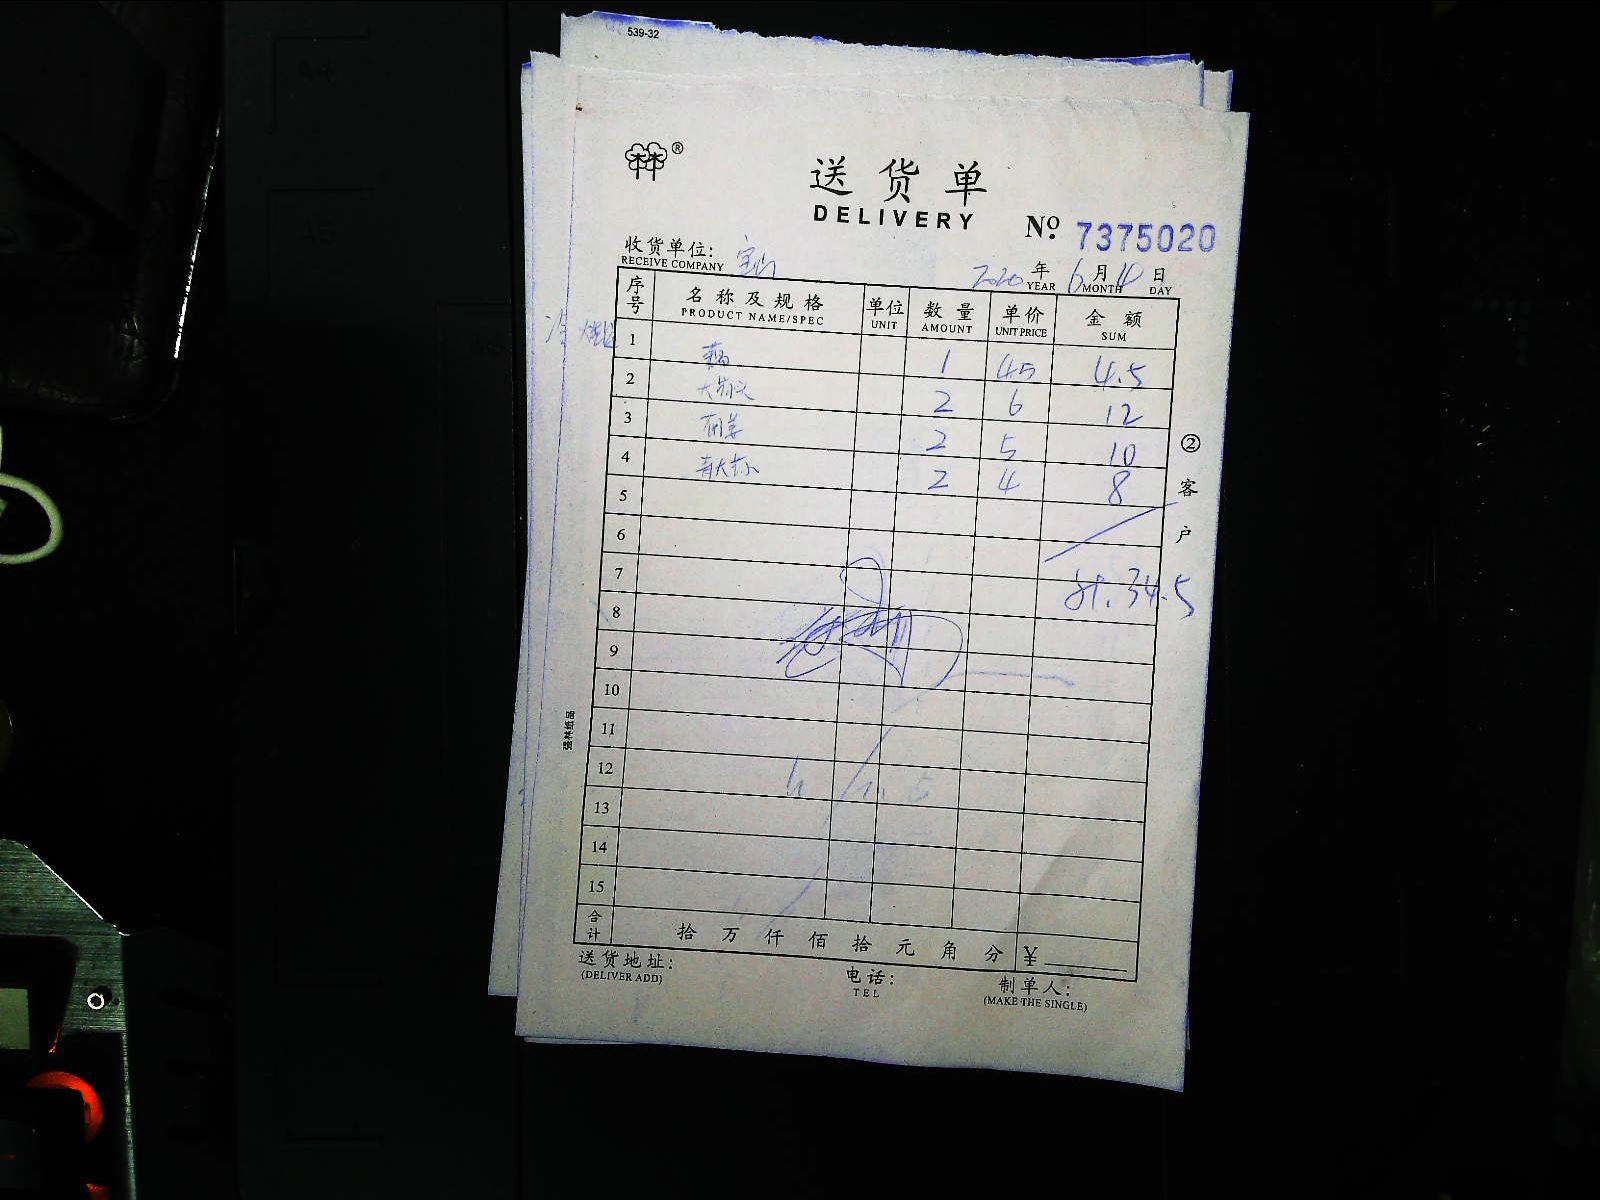 539-32
林®
送货单
DELIVERY
№ 7375020
收货单位:
RECEIVE COMPANY
2020 年 6 月 日
YEAR MONTH DAY
序号 名称及规格 单位 数量 单价 金额
PRODUCT NAME/SPEC UNIT AMOUNT UNIT PRICE SUM
1 藕 1 45 4.5
2 2 6 12
3 2 5 10
4 2 4 8
5
6
7 计.34.5
8
9
10
11
12
13
14
15
②客户
强林纸品
合计 拾 万 仟 佰 拾 元 角 分 ¥
送货地址: 电话: 制单人:
(DELIVER ADD) TEL (MAKE THE SINGLE)